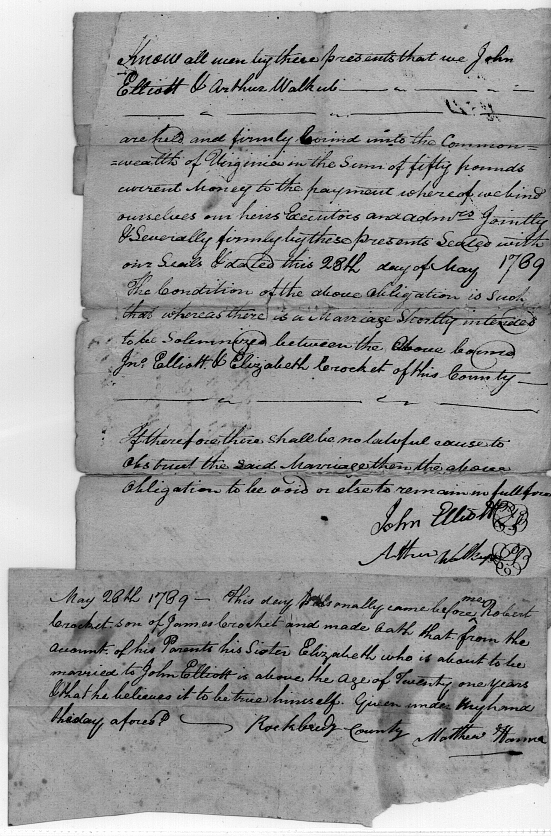 Know all men by these presents that we John
Elliott & Arthur Walkub
are held and firmly bound unto the Common=
=wealth of Virginia in the Sum of fifty pounds
current Money to the payment whereof we bind
ourselves our heirs Executors and admrs Jointly
& Severally firmly by these presents Sealed with
our Seals & dated this 28th day of May 1789
The Condition of the above Obligation is Such
that whereas there is a Marriage Shortly intended
to be Solemnized between the above bound
Jno. Elliott & Elizabeth Crocket of this County
If therefore there shall be no lawful cause to
obstruct the said Marriage then the above
Obligation to be void or else to remain in full force
John Elliott
Arthur Walkup
May 28th 1789 – this day personally came before me Robert
Crocket son of James Crocket and made oath that from the
account of his Parents his Sister Elizabeth who is about to be
married to John Elliott is above the age of Twenty one years
& that he believes it to be true himself. Given under my hand
the day aforesd. Rockbridg County Matthew Hanna